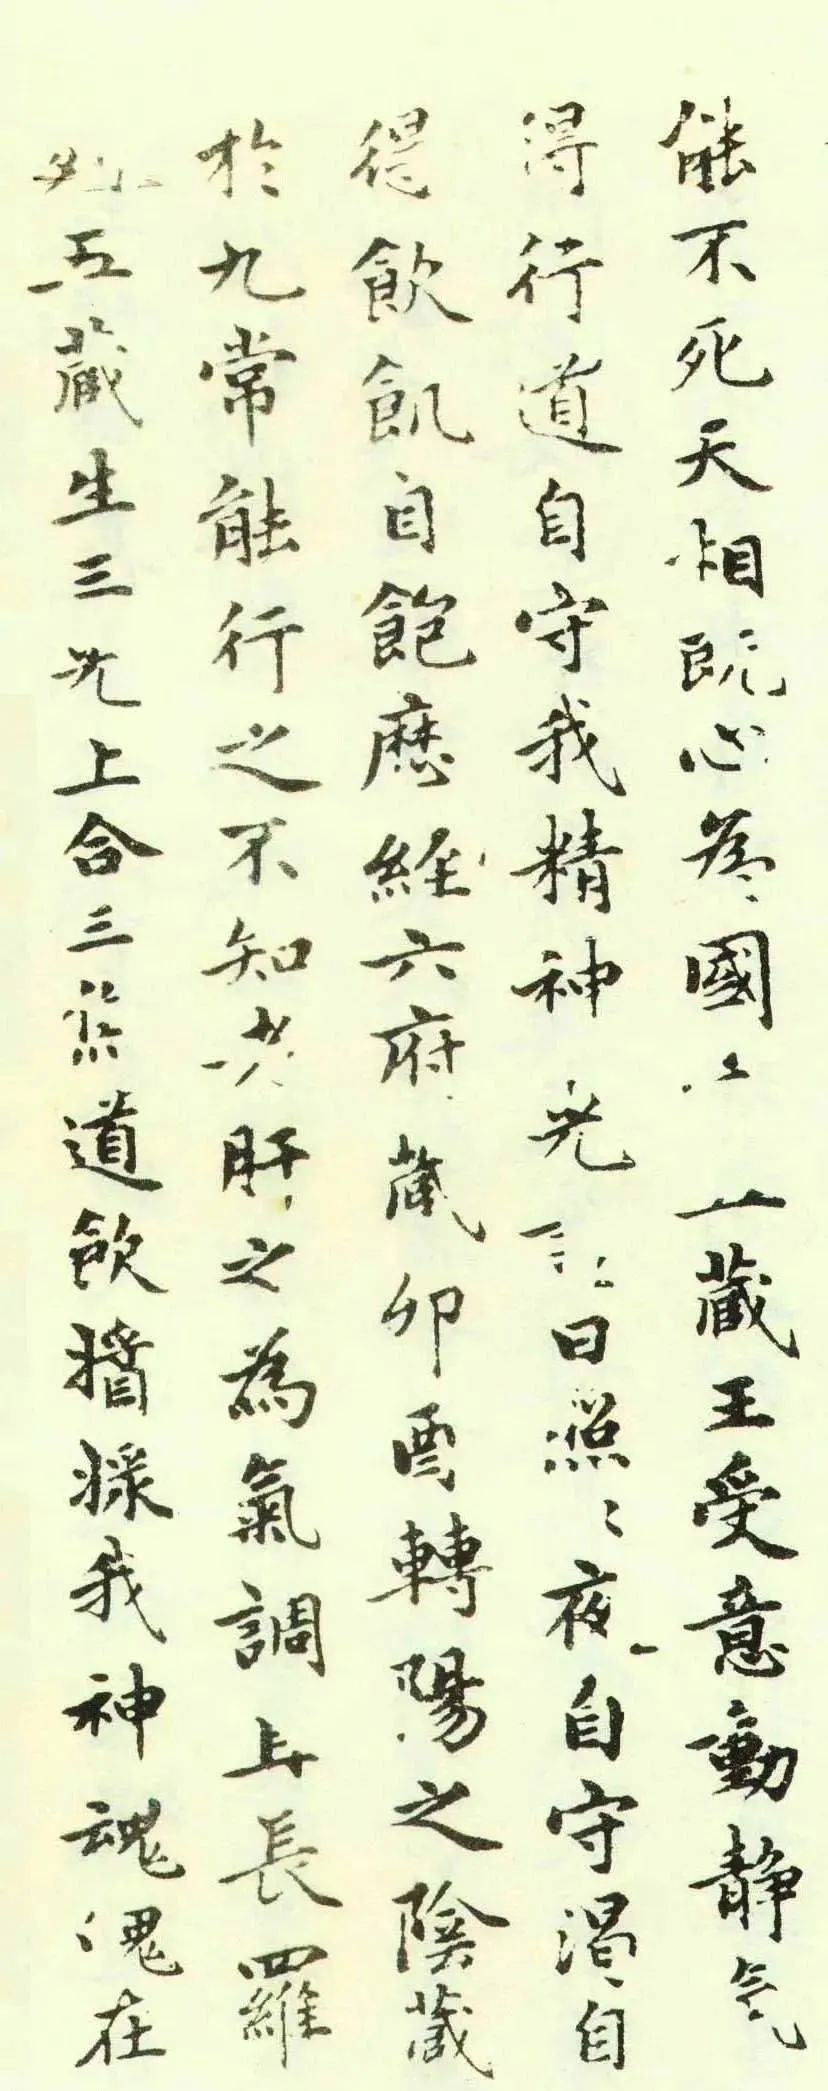 能不死天相既心為國一藏王受意動静气
得行道自守我精神光日照〻夜自守渴自
得飲飢自飽應經六府藏卯酉轉陽之陰藏
於九常能行之不知老肝之為氣調且長羅
列五藏生三光上合三焦道飲醬漿我神魂魄在